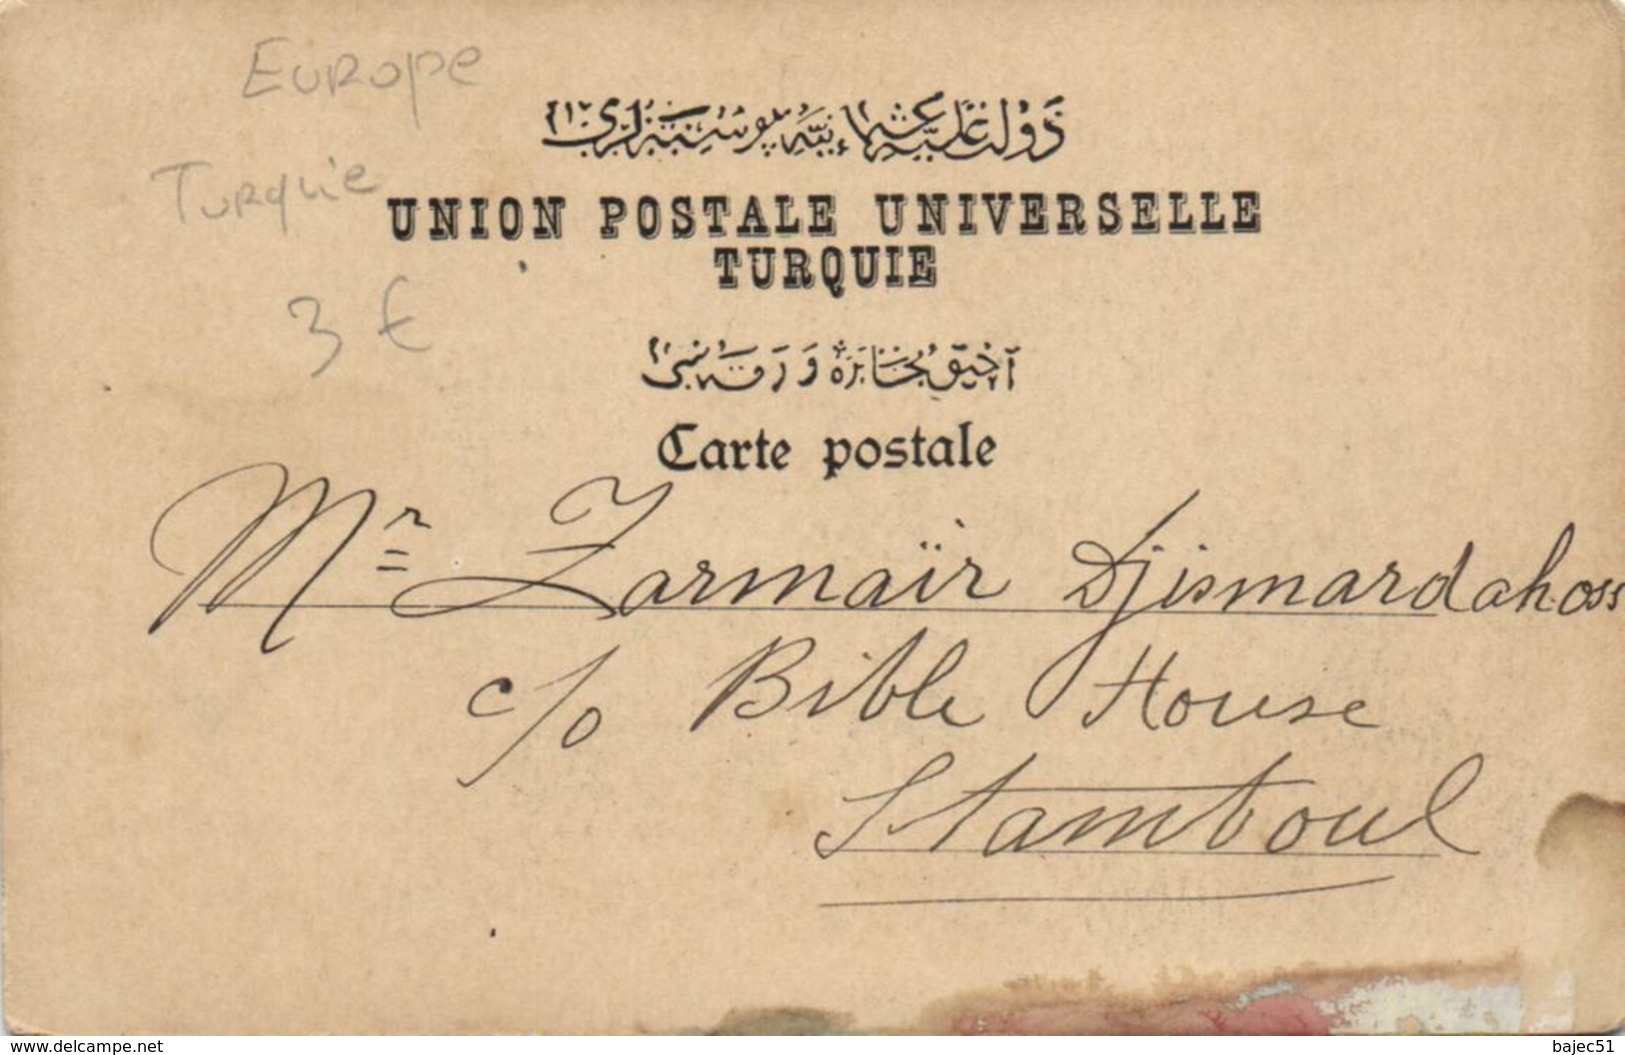 Europe
Turquie
3 €
دولت علیه عثمانیه پوسته لری
UNION POSTALE UNIVERSELLE
TURQUIE
آچیق مخابره ورقه سی
Carte postale
Mr Zarmaïr Djismardahoss
c/o Bible House
Stamboul
www.delcampe.net
bajec51